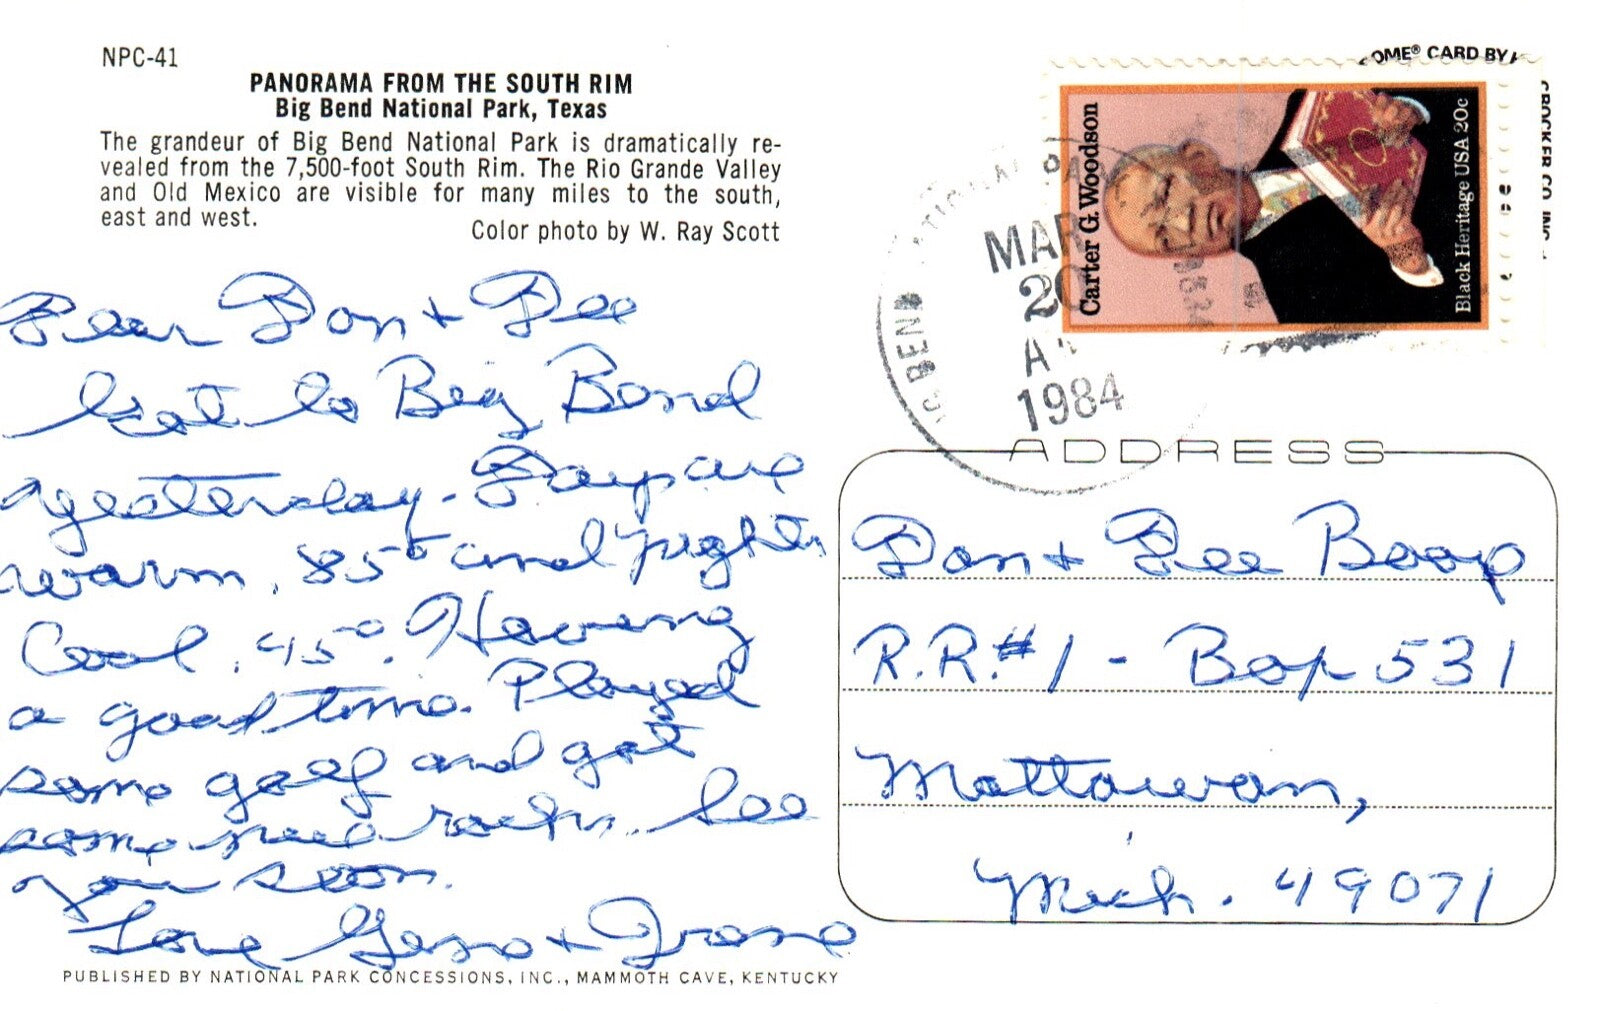 NPC-41
PANORAMA FROM THE SOUTH RIM
Big Bend National Park, Texas
The grandeur of Big Bend National Park is dramatically re-
vealed from the 7,500-foot South Rim. The Rio Grande Valley
and Old Mexico are visible for many miles to the south,
east and west.
Color photo by W. Ray Scott
OME® CARD BY
CROCKER CO. INC.
Carter G. Woodson
Black Heritage USA 20c
BEND NATIONAL PA
MAR
20
A
1984
Dear Don + Dee
Got to Big Bend
yesterday - Days are
warm, 85° and nights
Cool, 45°. Having
a good time. Played
some golf and got
some new rocks. See
you soon.
Love Gene +
ADDRESS
Don + Dee Boop
R.R.#1 - Box 531
Mattawan,
Mich. 49071
PUBLISHED BY NATIONAL PARK CONCESSIONS, INC., MAMMOTH CAVE, KENTUCKY